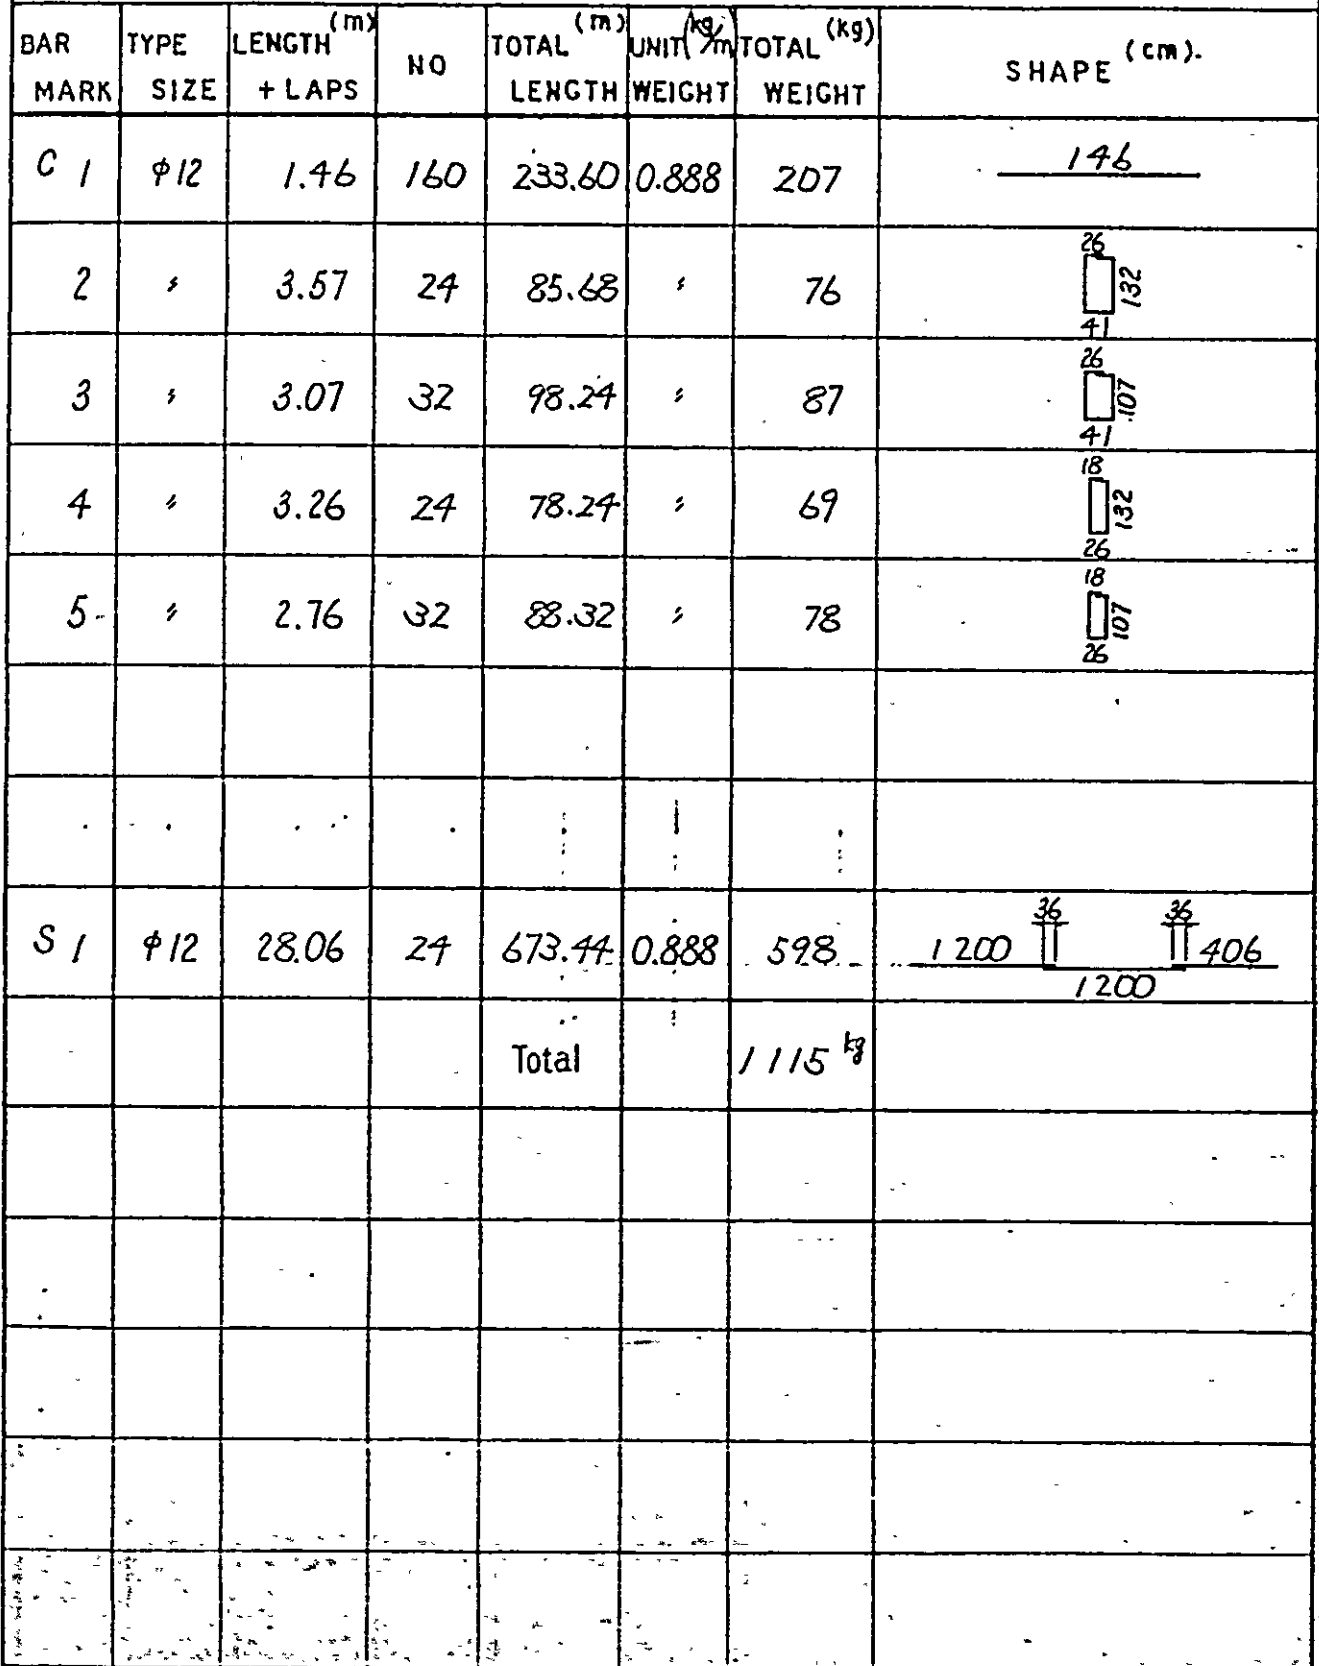 BAR MARK TYPE SIZE LENGTH (m) + LAPS NO TOTAL (m) LENGTH UNIT (kg/m) WEIGHT TOTAL (kg) WEIGHT SHAPE (cm).
C 1 φ12 1.46 160 233.60 0.888 207 146
2 〃 3.57 24 85.68 〃 76 26 132 41
3 〃 3.07 32 98.24 〃 87 26 107 41
4 〃 3.26 24 78.24 〃 69 18 132 26
5 〃 2.76 32 88.32 〃 78 18 107 26
S 1 φ12 28.06 24 673.44 0.888 598 1200 36 1200 36 406
Total 1115 kg